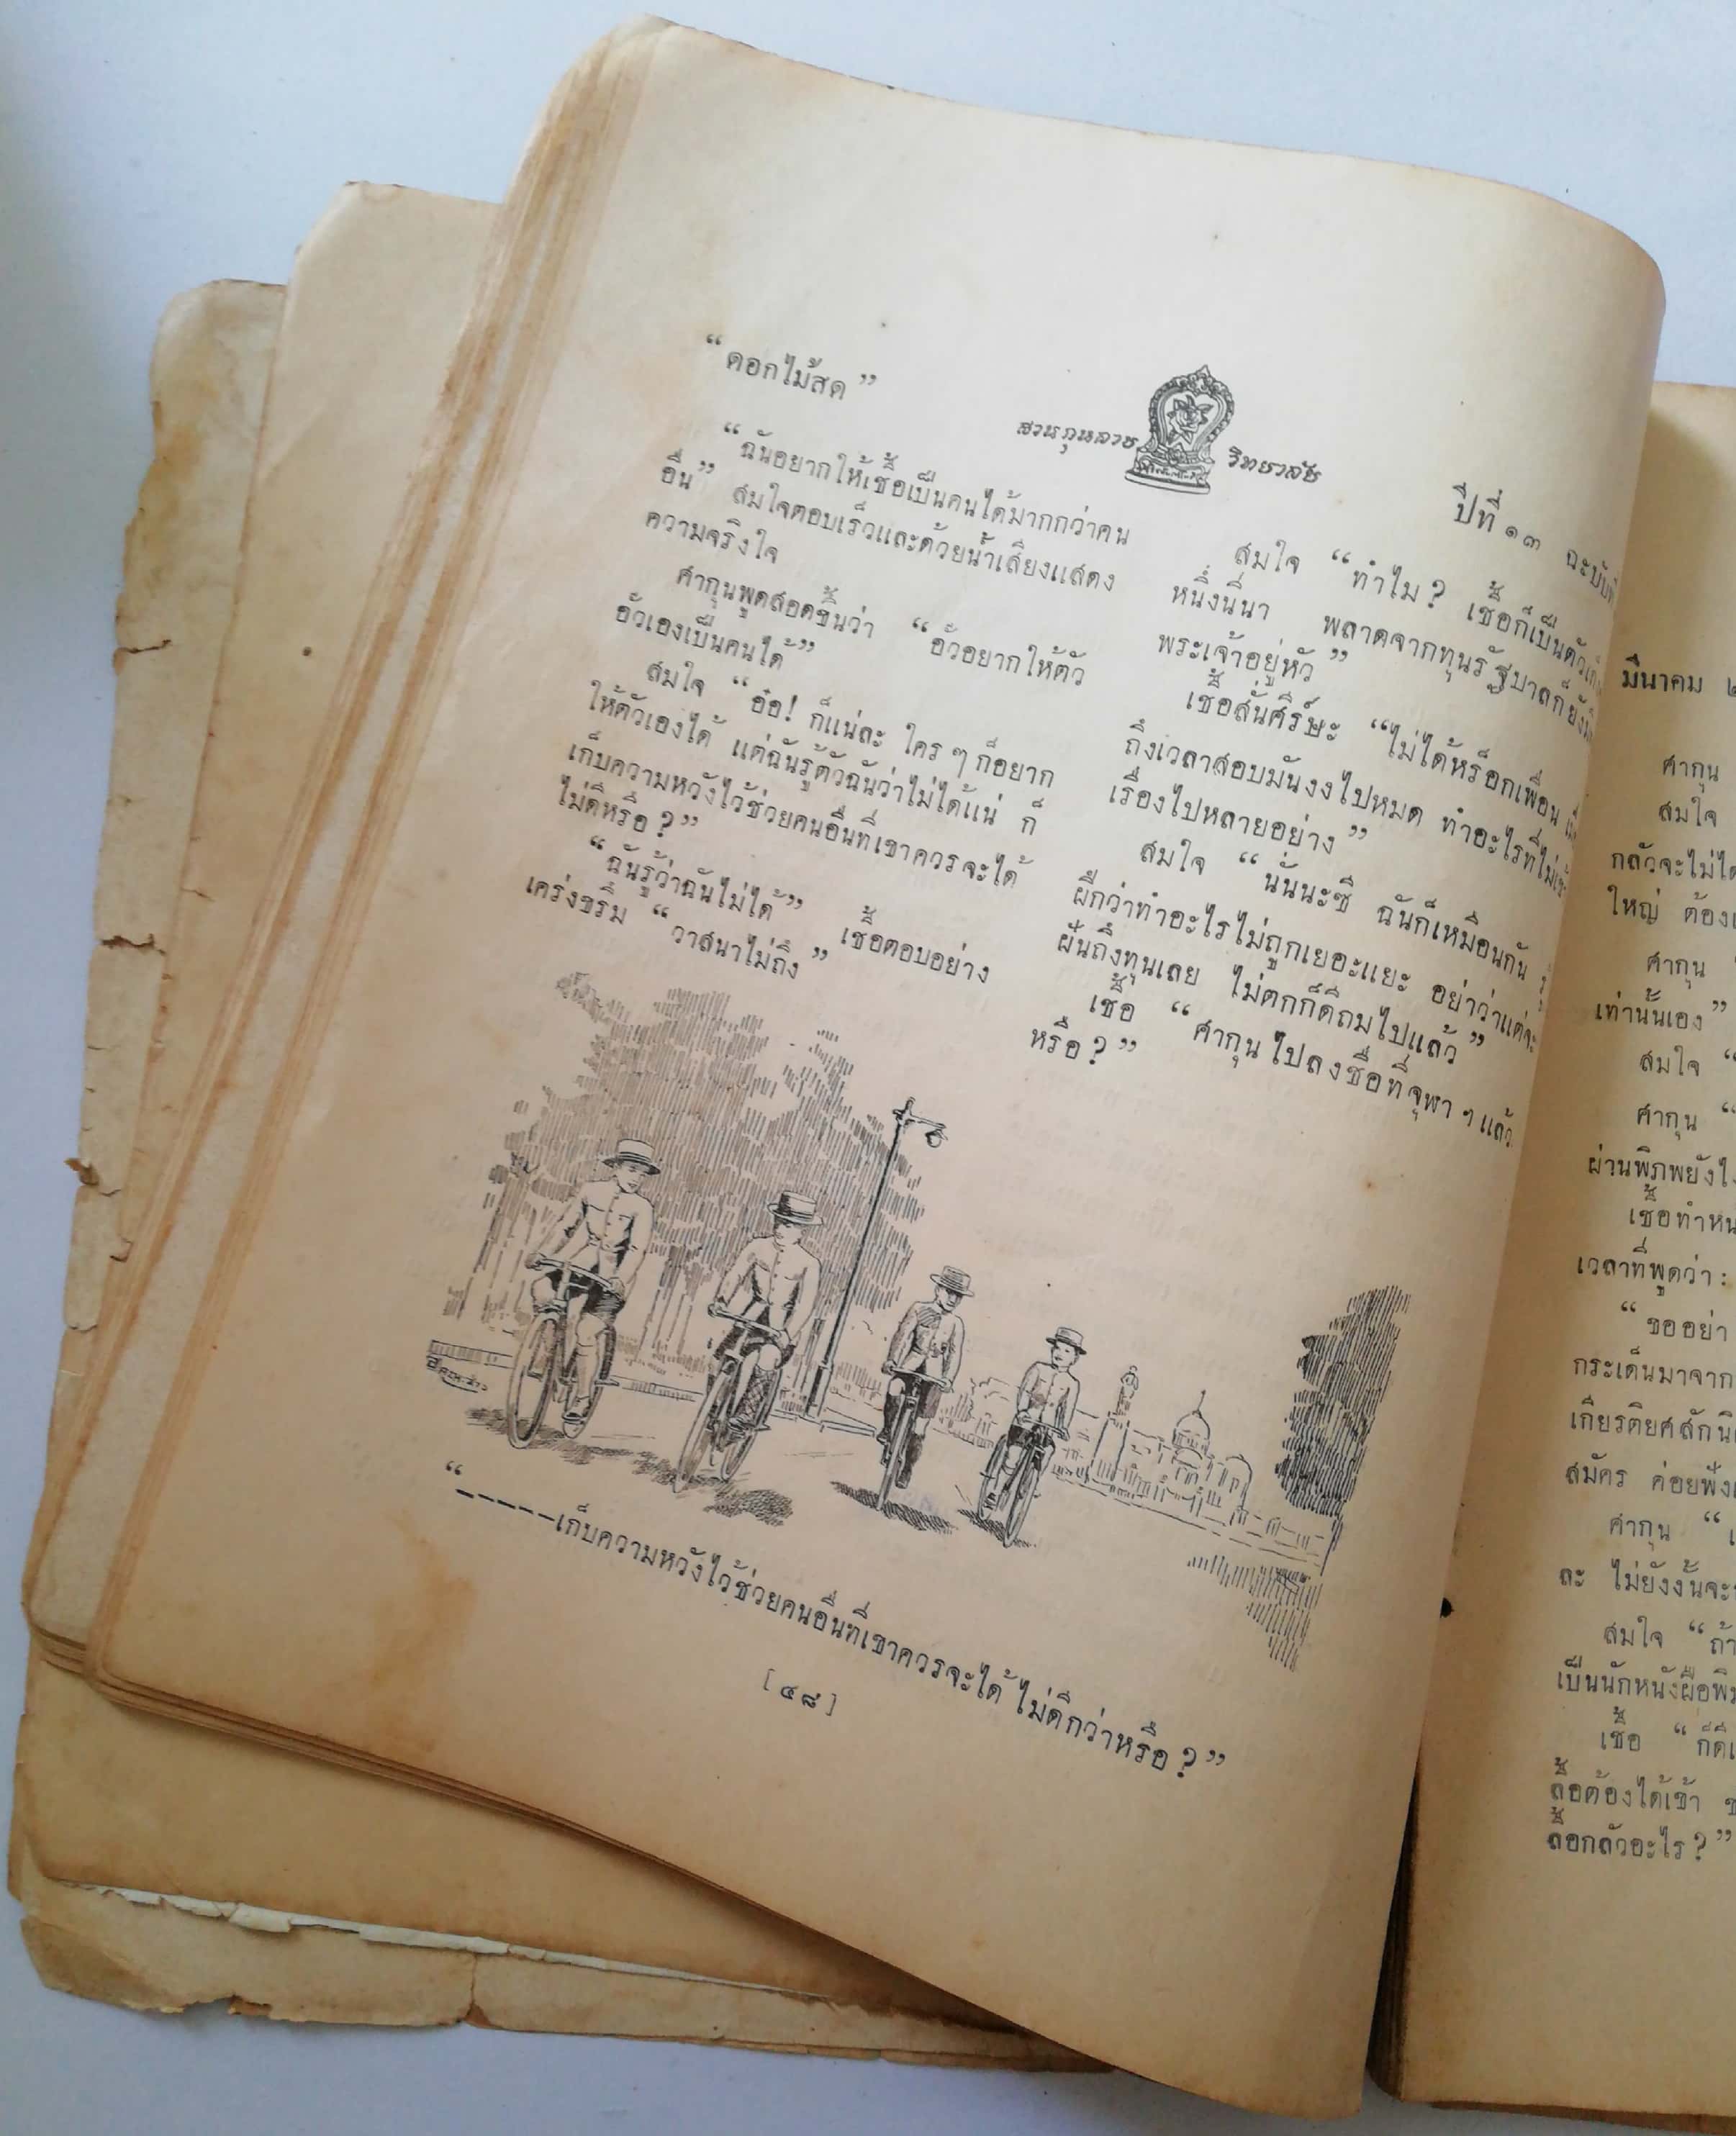 “ดอกไม้สด”
สวนกุหลาบ วิทยาลัย
ปีที่ ๑๓
“ฉันอยากให้เชื้อเป็นคนได้มากกว่าคน
อื่น” สมใจตอบเร็วและด้วยน้ำเสียงแสดง
ความจริงใจ
ศากุนพูดสอดขึ้นว่า “อั๊วอยากให้ตัว
อั๊วเองเป็นคนได้”
สมใจ “อ๋อ! ก็แน่ละ ใคร ๆ ก็อยาก
ให้ตัวเองได้ แต่ฉันรู้ตัวฉันว่าไม่ได้แน่ ก็
เก็บความหวังไว้ช่วยคนอื่นที่เขาควรจะได้
ไม่ดีหรือ?”
“ฉันรู้ว่าฉันไม่ได้” เชื้อตอบอย่าง
เคร่งขรึม “วาสนาไม่ถึง”
สมใจ “ทำไม? เชื้อก็เป็นตัว
หนึ่งนี่นา พลาดจากทุนรัฐบาลก็ยัง
พระเจ้าอยู่หัว”
เชื้อสั่นศีร์ษะ “ไม่ได้หร็อกเพื่อน
ถึงเวลาสอบมันงงไปหมด ทำอะไรที่ไม่
เรื่องไปหลายอย่าง”
สมใจ “นั่นนะซี ฉันก็เหมือนกัน
ผีกว่าทำอะไรไม่ถูกเยอะแยะ อย่าว่าแต่จะ
ฝันถึงทุนเลย ไม่ตกก็ดีถมไปแล้ว”
เชื้อ “ศากุนไปลงชื่อที่จุฬา ๆ แล้ว
หรือ?”
“-----เก็บความหวังไว้ช่วยคนอื่นที่เขาควรจะได้ ไม่ดีกว่าหรือ?”
[๔๘]
มีนาคม
ศากุน
สมใจ
กลัวจะไม่ได้
ใหญ่ ต้อง
ศากุน
เท่านั้นเอง”
สมใจ “
ศากุน “
ผ่านพิภพยังไง
เชื้อทำหน
เวลาที่พูดว่า:
“ขออย่า
กระเด็นมาจาก
เกียรติยศสักนิ
สมัคร ค่อยฟัง
ศากุน “
ละ ไม่ยังงั้นจะ
สมใจ “ถ้า
เป็นนักหนังสือพิม
เชื้อ “ก็ดี
ลื้อต้องได้เข้า
ลื้อกลัวอะไร?”